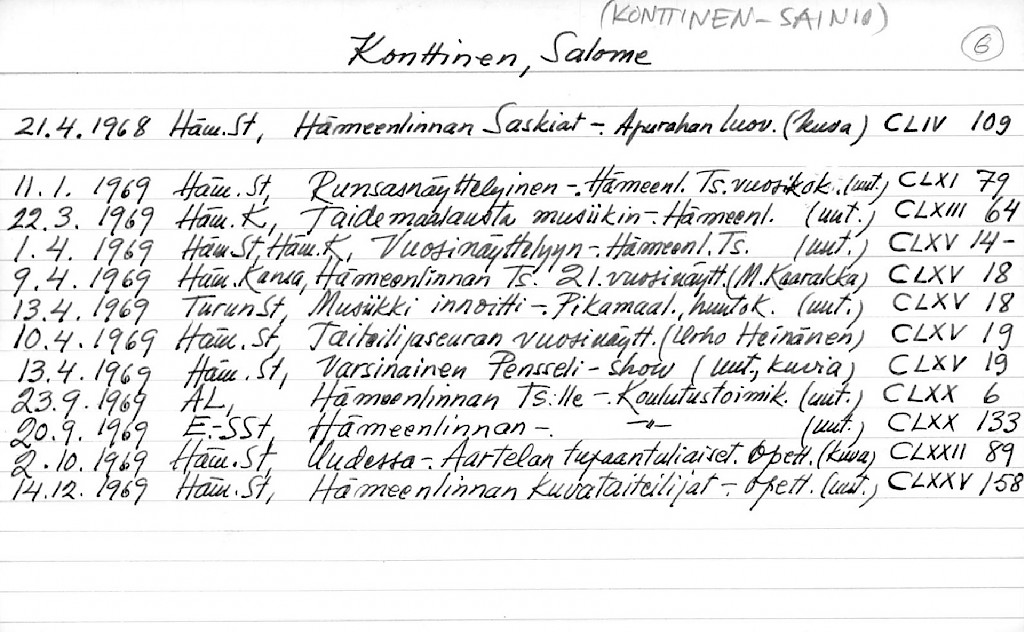 (KONTTINEN-SAINIO)
Konttinen, Salome
6
21.4.1968 Häm.St, Hämeenlinnan Saskiat-. Apurahan luov. (kuva) CLIV 109
11.1. 1969 Häm.St, Runsasnäyttelyinen-. Hämeenl. Ts. vuosikok. (uut.) CLXI 79
22.3. 1969 Häm.K, Taidemaalausta musiikin-. Hämeenl. (uut.) CLXIII 64
1.4. 1969 Häm.St, Häm.K, Vuosinäyttelyyn-. Hämeenl. Ts. (uut.) CLXV 14-
9.4. 1969 Häm.Kansa, Hämeenlinnan Ts. 21. vuosinäytt. (M. Kaarakka) CLXV 18
13.4. 1969 TurunSt, Musiikki innoitti-. Pikamaal., huutok. (uut.) CLXV 18
10.4. 1969 Häm.St, Taiteilijaseuran vuosinäytt. (Urho Heinänen) CLXV 19
13.4. 1969 Häm.St, Varsinainen Pensseli-show (uut., kuvia) CLXV 19
23.9. 1969 AL, Hämeenlinnan Ts:lle-. Koulutustoimik. (uut.) CLXX 6
20.9. 1969 E.-SSt, Hämeenlinnan-. -"- (uut.) CLXX 133
2.10. 1969 Häm.St, Uudessa-. Aartelan tupaantuliaiset. Opett. (kuva) CLXXII 89
14.12. 1969 Häm.St, Hämeenlinnan kuvataiteilijat-. Opett. (uut.) CLXXV 158